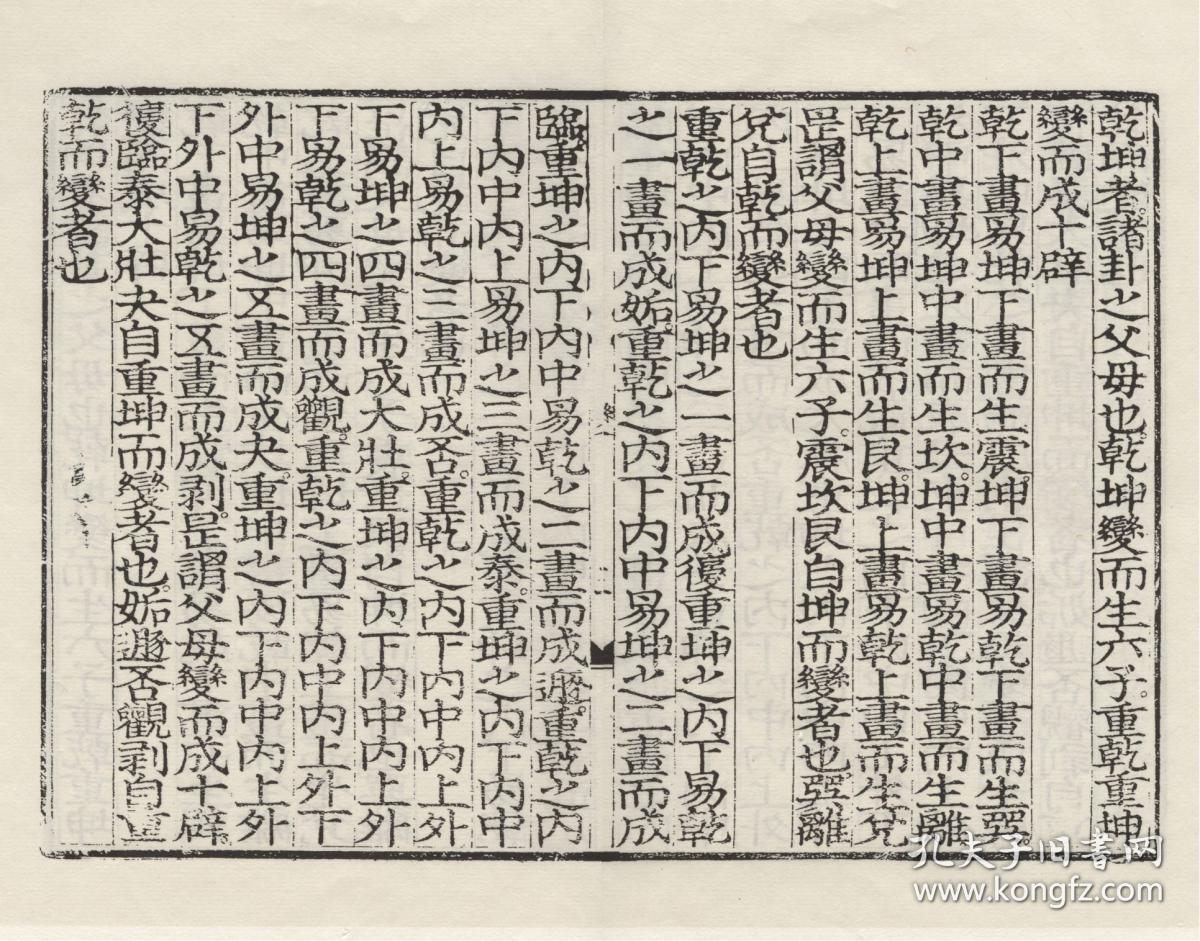 乾坤者諸卦之父母也乾坤變而生六子重乾重坤
變而成十辟
乾下畫易坤下畫而生震坤下畫易乾下畫而生巽
乾中畫易坤中畫而生坎坤中畫易乾中畫而生離
乾上畫易坤上畫而生艮坤上畫易乾上畫而生兌
是謂父母變而生六子震坎艮自坤而變者也巽離
兌自乾而變者也
重乾之內下易坤之一畫而成復重坤之內下易乾
之一畫而成姤重乾之內下內中易坤之二畫而成
臨重坤之內下內中易乾之二畫而成遯重乾之內
下內中內上易坤之三畫而成泰重坤之內下內中
內上易乾之三畫而成否重乾之內下內中內上外
下易坤之四畫而成大壯重坤之內下內中內上外
下易乾之四畫而成觀重乾之內下內中內上外下
外中易坤之五畫而成夬重坤之內下內中內上外
下外中易乾之五畫而成剥是謂父母變而成十辟
復臨泰大壯夬自重坤而變者也姤遯否觀剥自重
乾而變者也
孔夫子旧书网
www.kongfz.com